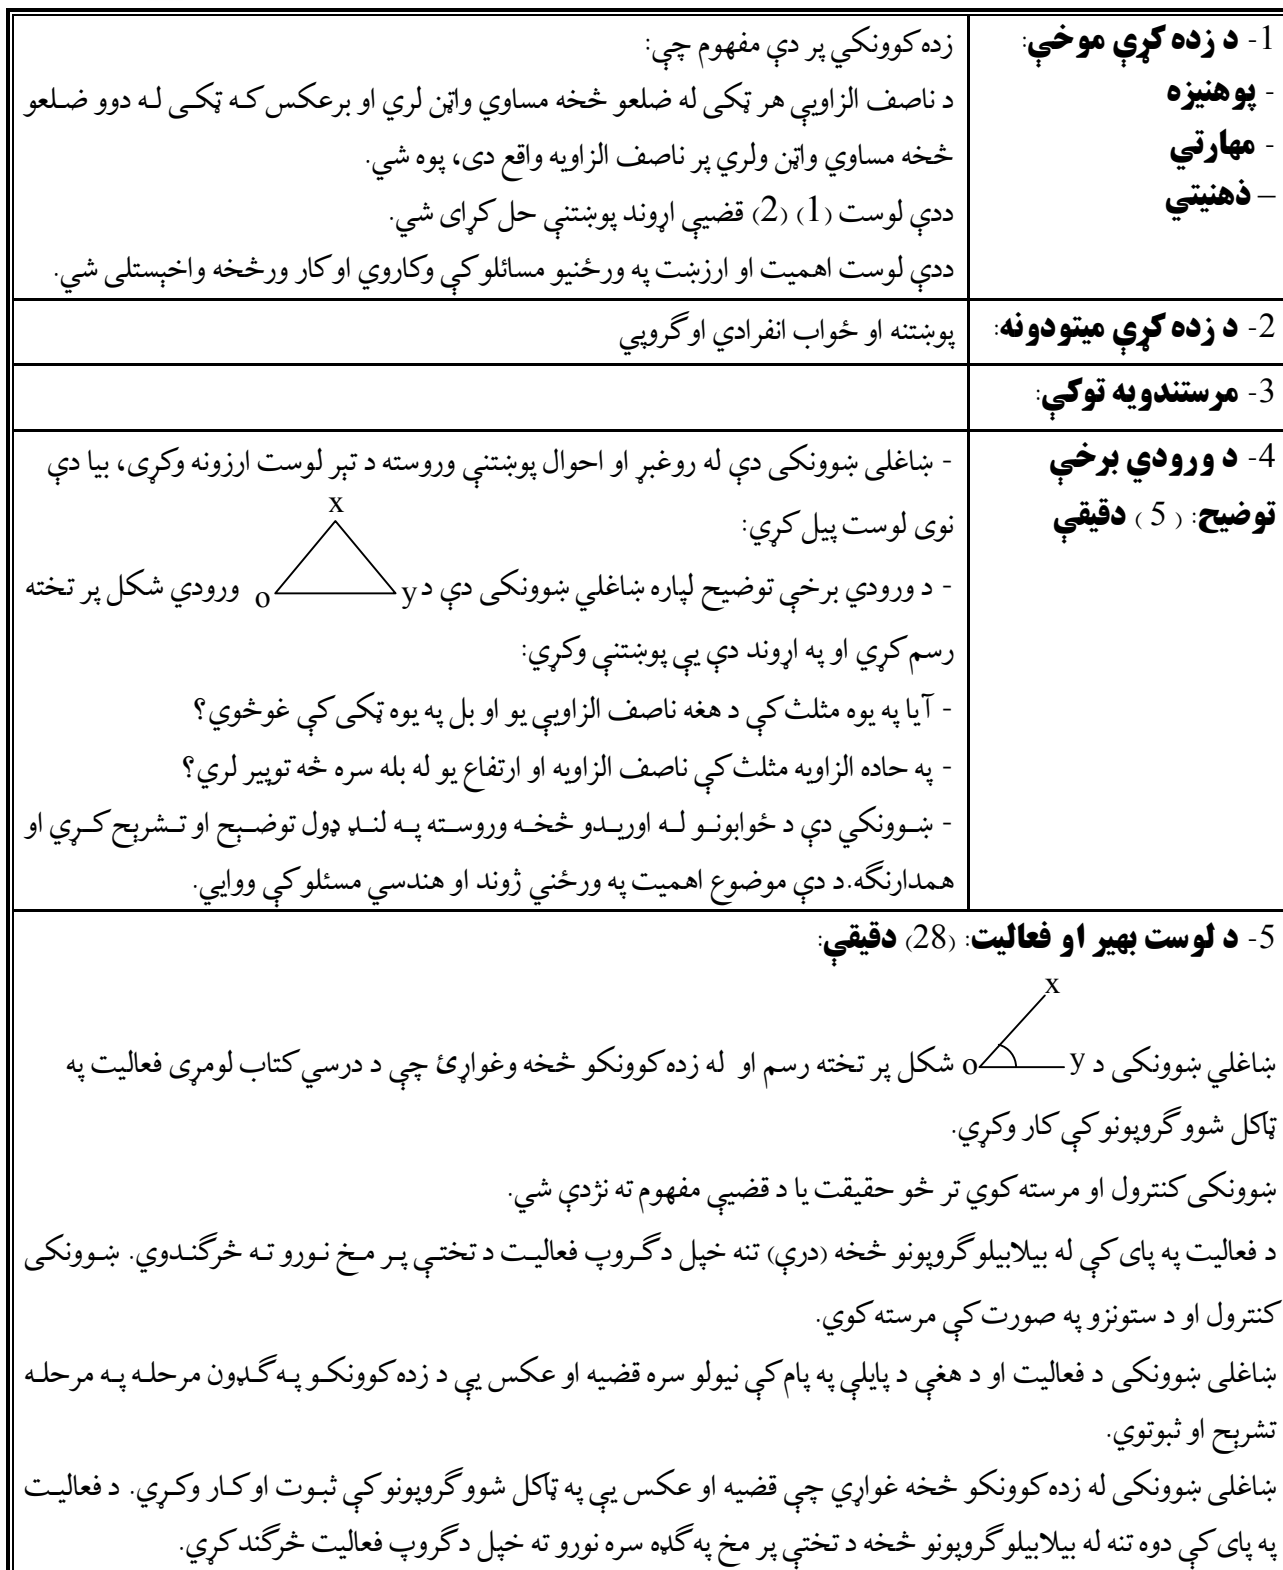 1- د زده کړې موخې:
- پوهنيزه
- مهارتي
– ذهنيتي
زده کوونکي پر دې مفهوم چې:
د ناصف الزاويې هر ټکی له ضلعو څخه مساوي واټن لري او برعکس که ټکی له دوو ضلعو
څخه مساوي واټن ولري پر ناصف الزاويه واقع دی، پوه شي.
ددې لوست (1) (2) قضيې اړوند پوښتنې حل کړای شي.
ددې لوست اهميت او ارزښت په ورځنيو مسائلو کې وکاروي او کار ورڅخه واخيستلی شي.
2- د زده کړې ميتودونه:
پوښتنه او ځواب انفرادي او گروپي
3- مرستندويه توکي:
4- د ورودي برخې
توضيح: ( 5 ) دقيقې
- ښاغلی ښوونکی دې له روغبړ او احوال پوښتنې وروسته د تېر لوست ارزونه وکړی، بيا دې
نوی لوست پيل کړي:
- د ورودي برخې توضيح لپاره ښاغلي ښوونکی دې د x y o ورودي شکل پر تخته
رسم کړي او په اړوند دې يې پوښتنې وکړي:
- آيا په يوه مثلث کې د هغه ناصف الزاويې يو او بل په يوه ټکی کې غوڅوي؟
- په حاده الزاويه مثلث کې ناصف الزاويه او ارتفاع يو له بله سره څه توپير لري؟
- ښوونکي دې د ځوابونو له اوريدو څخه وروسته په لنډ ډول توضېح او تشرېح کړي او
همدارنگه.د دې موضوع اهميت په ورځني ژوند او هندسي مسئلو کې ووايي.
5- د لوست بهير او فعاليت: (28) دقيقې:
ښاغلي ښوونکی د x y o شکل پر تخته رسم او له زده کوونکو څخه وغواړئ چې د درسي کتاب لومړی فعاليت په
ټاکل شوو گروپونو کې کار وکړي.
ښوونکی کنترول او مرسته کوي تر څو حقيقت يا د قضيې مفهوم ته نژدې شي.
د فعاليت په پای کې له بيلابيلو گروپونو څخه (درې) تنه خپل د گروپ فعاليت د تختې پر مخ نورو ته څرگندوي. ښوونکی
کنترول او د ستونزو په صورت کې مرسته کوي.
ښاغلی ښوونکی د فعاليت او د هغې د پايلې په پام کې نيولو سره قضيه او عکس يې د زده کوونکو په گډون مرحله په مرحله
تشرېح او ثبوتوي.
ښاغلی ښوونکی له زده کوونکو څخه غواړي چې قضيه او عکس يې په ټاکل شوو گروپونو کې ثبوت او کار وکړي. د فعاليت
په پای کې دوه تنه له بيلابيلو گروپونو څخه د تختې پر مخ په گډه سره نورو ته خپل د گروپ فعاليت څرگند کړي.